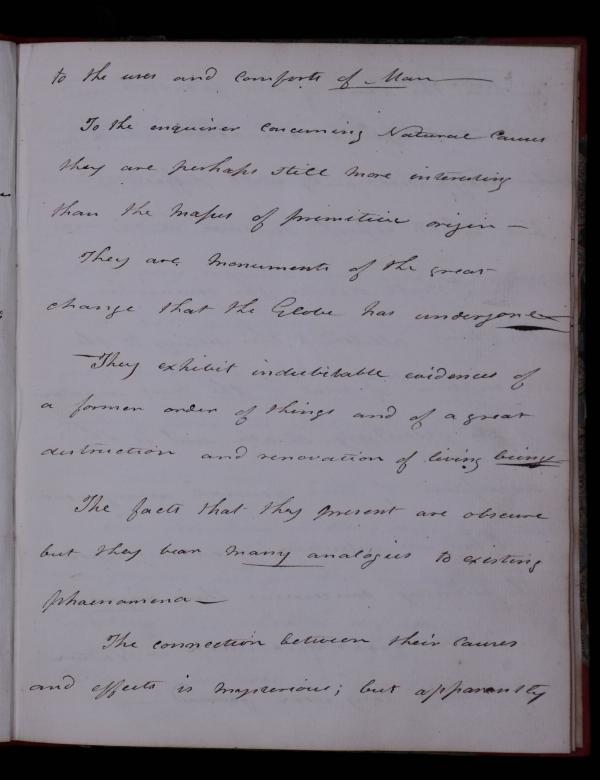 to the uses and comforts of Man —
To the enquirer concerning Natural Causes
they are perhaps still more interesting
than the Masses of primitive origin —
They are monuments of the great
change that the Globe has undergone
— They exhibit indubitable evidences of
a former order of things and of a great
destruction and renovation of living beings
The facts that they present are obscure
but they bear many analogies to existing
phaenomena —
The connection between their causes
and effects is mysterious; but apparently